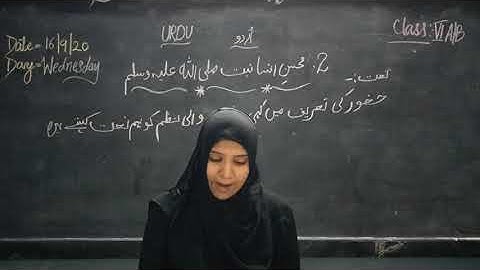 Date = 16/9/20
Day = Wednesday
URDU
اُردو
Class: VI A/B
2. محسنِ انسانیت صلی اللہ علیہ وسلم
نعت:-
حضور کی تعریف میں والی نظم کو ہم نعت کہتے ہیں